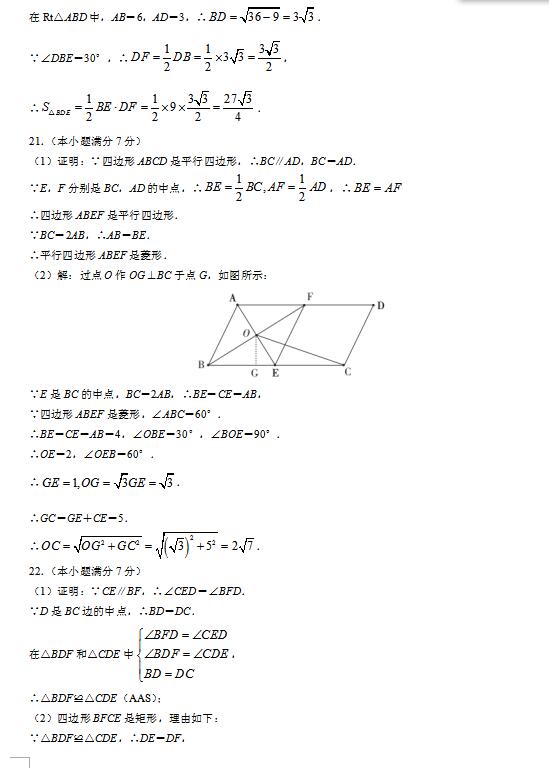 在Rt△ABD中，AB=6，AD=3，∴BD=√(36−9)=3√3．
∵∠DBE=30°，∴DF=1/2 DB=1/2×3√3=3√3/2，
∴S△BDE=1/2 BE·DF=1/2×9×3√3/2=27√3/4．
21.（本小题满分7分）
（1）证明：∵四边形ABCD是平行四边形，∴BC∥AD，BC=AD．
∵E，F分别是BC，AD的中点，∴BE=1/2 BC,AF=1/2 AD，∴BE=AF
∴四边形ABEF是平行四边形．
∵BC=2AB，∴AB=BE．
∴平行四边形ABEF是菱形．
（2）解：过点O作OG⊥BC于点G，如图所示：
A F D
O
B G E C
∵E是BC的中点，BC=2AB，∴BE=CE=AB，
∵四边形ABEF是菱形，∠ABC=60°．
∴BE=CE=AB=4，∠OBE=30°，∠BOE=90°．
∴OE=2，∠OEB=60°．
∴GE=1,OG=√3GE=√3．
∴GC=GE+CE=5．
∴OC=√(OG²+GC²)=√((√3)²+5²)=2√7．
22.（本小题满分7分）
（1）证明：∵CE∥BF，∴∠CED=∠BFD．
∵D是BC边的中点，∴BD=DC，
在△BDF和△CDE中{∠BFD=∠CED
∠BDF=∠CDE，
BD=DC
∴△BDF≌△CDE（AAS）；
（2）四边形BFCE是矩形，理由如下：
∵△BDF≌△CDE，∴DE=DF，